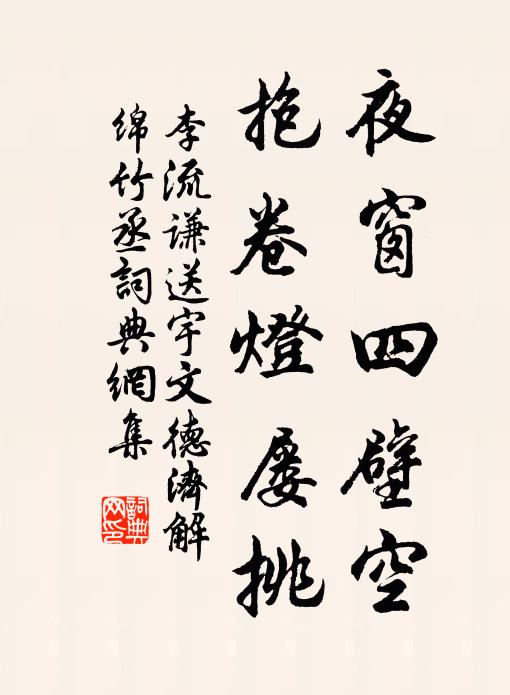 夜窗四壁空
抱卷燈屢挑
李流謙送宇文德濟解
綿竹丞詞典網集
詞典網印